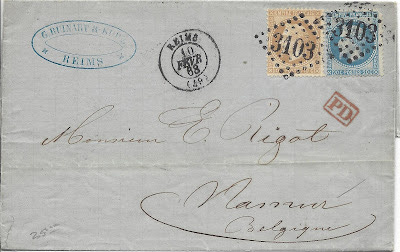 G. RUINART
REIMS
REIMS
10
FEVR
68
(49)
3103
3103
PD
Monsieur E. Rigot
Namur
Belgique